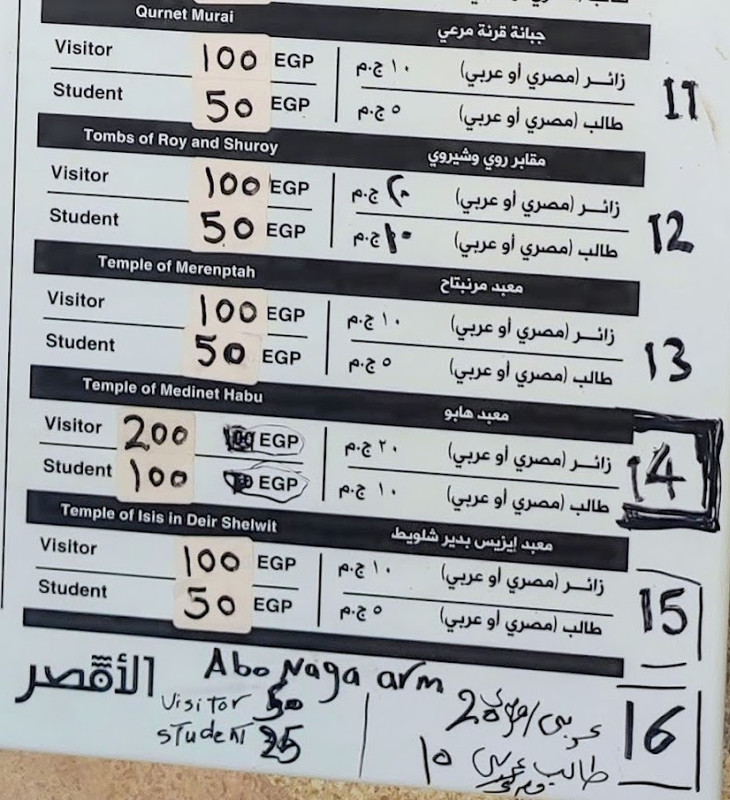 طالب
Qurnet Murai جبانة قرنة مرعي
Visitor 100 EGP ١٠ ج.م زائـــر (مصري أو عربي)
Student 50 EGP ٥ ج.م طالب (مصري أو عربي)
11
Tombs of Roy and Shuroy مقابر روي وشيروي
Visitor 100 EGP ٢٠ ج.م زائـــر (مصري أو عربي)
Student 50 EGP ١٠ ج.م طالب (مصري أو عربي)
12
Temple of Merenptah معبد مرنبتاح
Visitor 100 EGP ١٠ ج.م زائـــر (مصري أو عربي)
Student 50 EGP ٥ ج.م طالب (مصري أو عربي)
13
Temple of Medinet Habu معبد هابو
Visitor 200 100 EGP ٢٠ ج.م زائـــر (مصري أو عربي)
Student 100 EGP ١٠ ج.م طالب (مصري أو عربي)
14
Temple of Isis in Deir Shelwit معبد إيزيس بدير شلويط
Visitor 100 EGP ١٠ ج.م زائـــر (مصري أو عربي)
Student 50 EGP ٥ ج.م طالب (مصري أو عربي)
15
الأقصر
Abo Naga arm
Visitor 50
student 25
عربى/مصرى 20
طالب عربى ١٠
مصرى
16